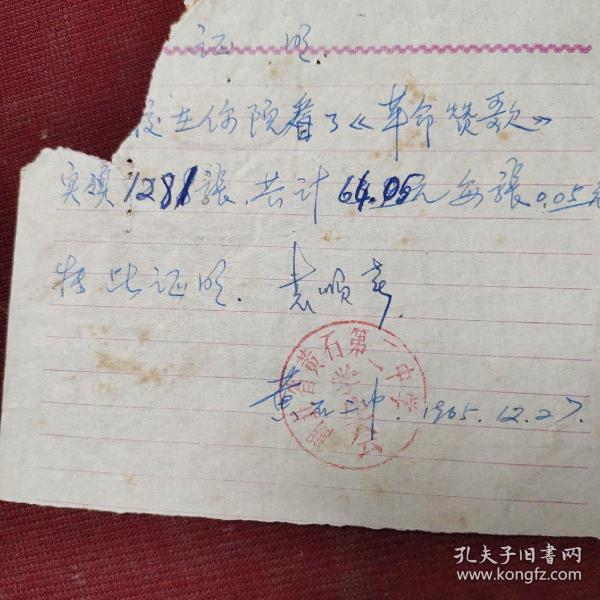 证 明.
校在你院看了《革命赞歌》
实领1281張.共计64.05元每張0.05元
特此证明.
黄石二中.1965.12.27.
湖北省黄石第二中学
孔夫子旧书网
www.kongfz.com